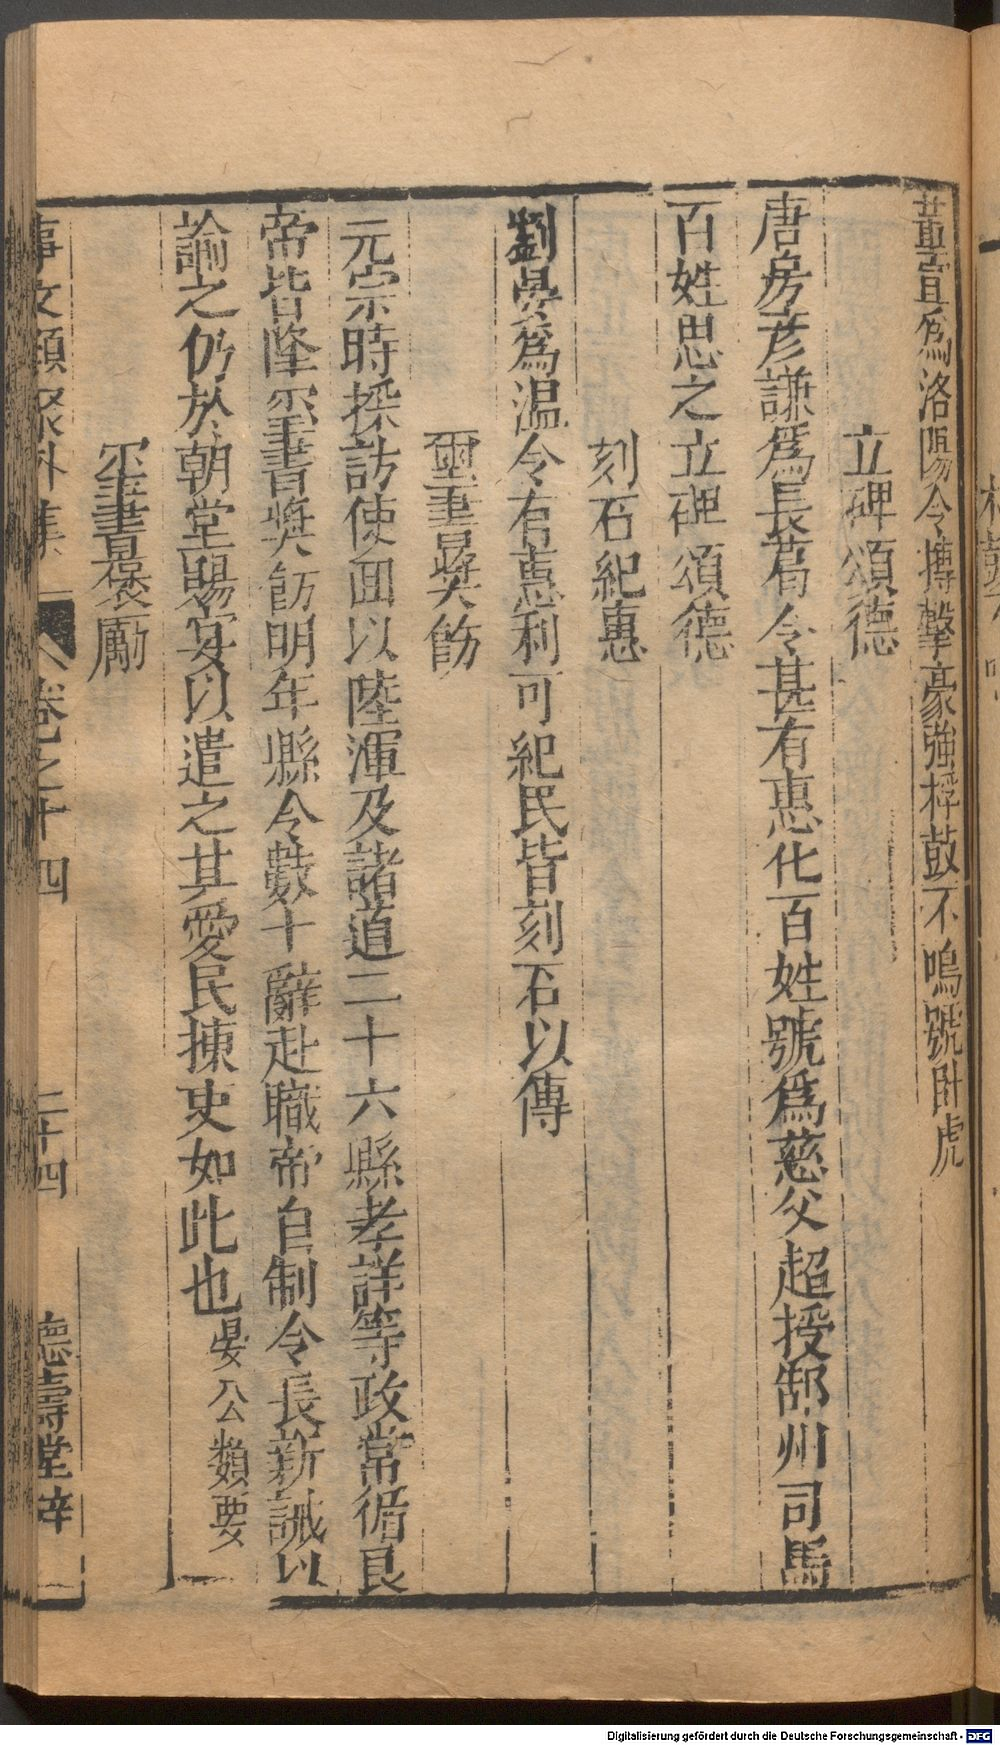 董宣爲洛陽令搏擊豪強桴鼓不鳴號臥虎
立碑頌德
唐房彦謙爲長葛令甚有惠化百姓號爲慈父超授鄀州司馬
百姓思之立碑頌德
刻石紀惠
劉晏爲温令有惠利可紀民皆刻石以傳
璽書奬飭
元宗時採訪使囬以陸渾及諸道二十六縣孝詳等政常循良
帝皆降璽書奬飭明年縣令數十辭赴職帝自制令長新誡以
諭之仍於朝堂賜宴以遣之其愛民揀吏如此也晏公類要
璽書褒勵
事文類聚外集 卷之十四 二十四 德壽堂梓
Digitalisierung gefördert durch die Deutsche Forschungsgemeinschaft - DFG